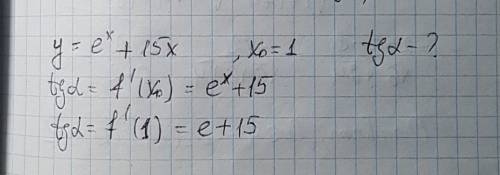 y = e^x + 15x , x₀ = 1 tgα - ?
tgα = f'(x₀) = e^x + 15
tgα = f'(1) = e + 15